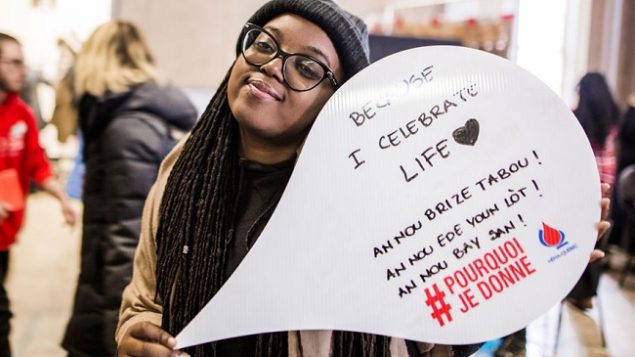 BECAUSE
I CELEBRATE
LIFE
ANNOU BRIZE TABOU!
AN NOU EDE YOUN LÒT!
AN NOU BAY SAN!
#POURQUOI
JE DONNE
HÉMA-QUÉBEC